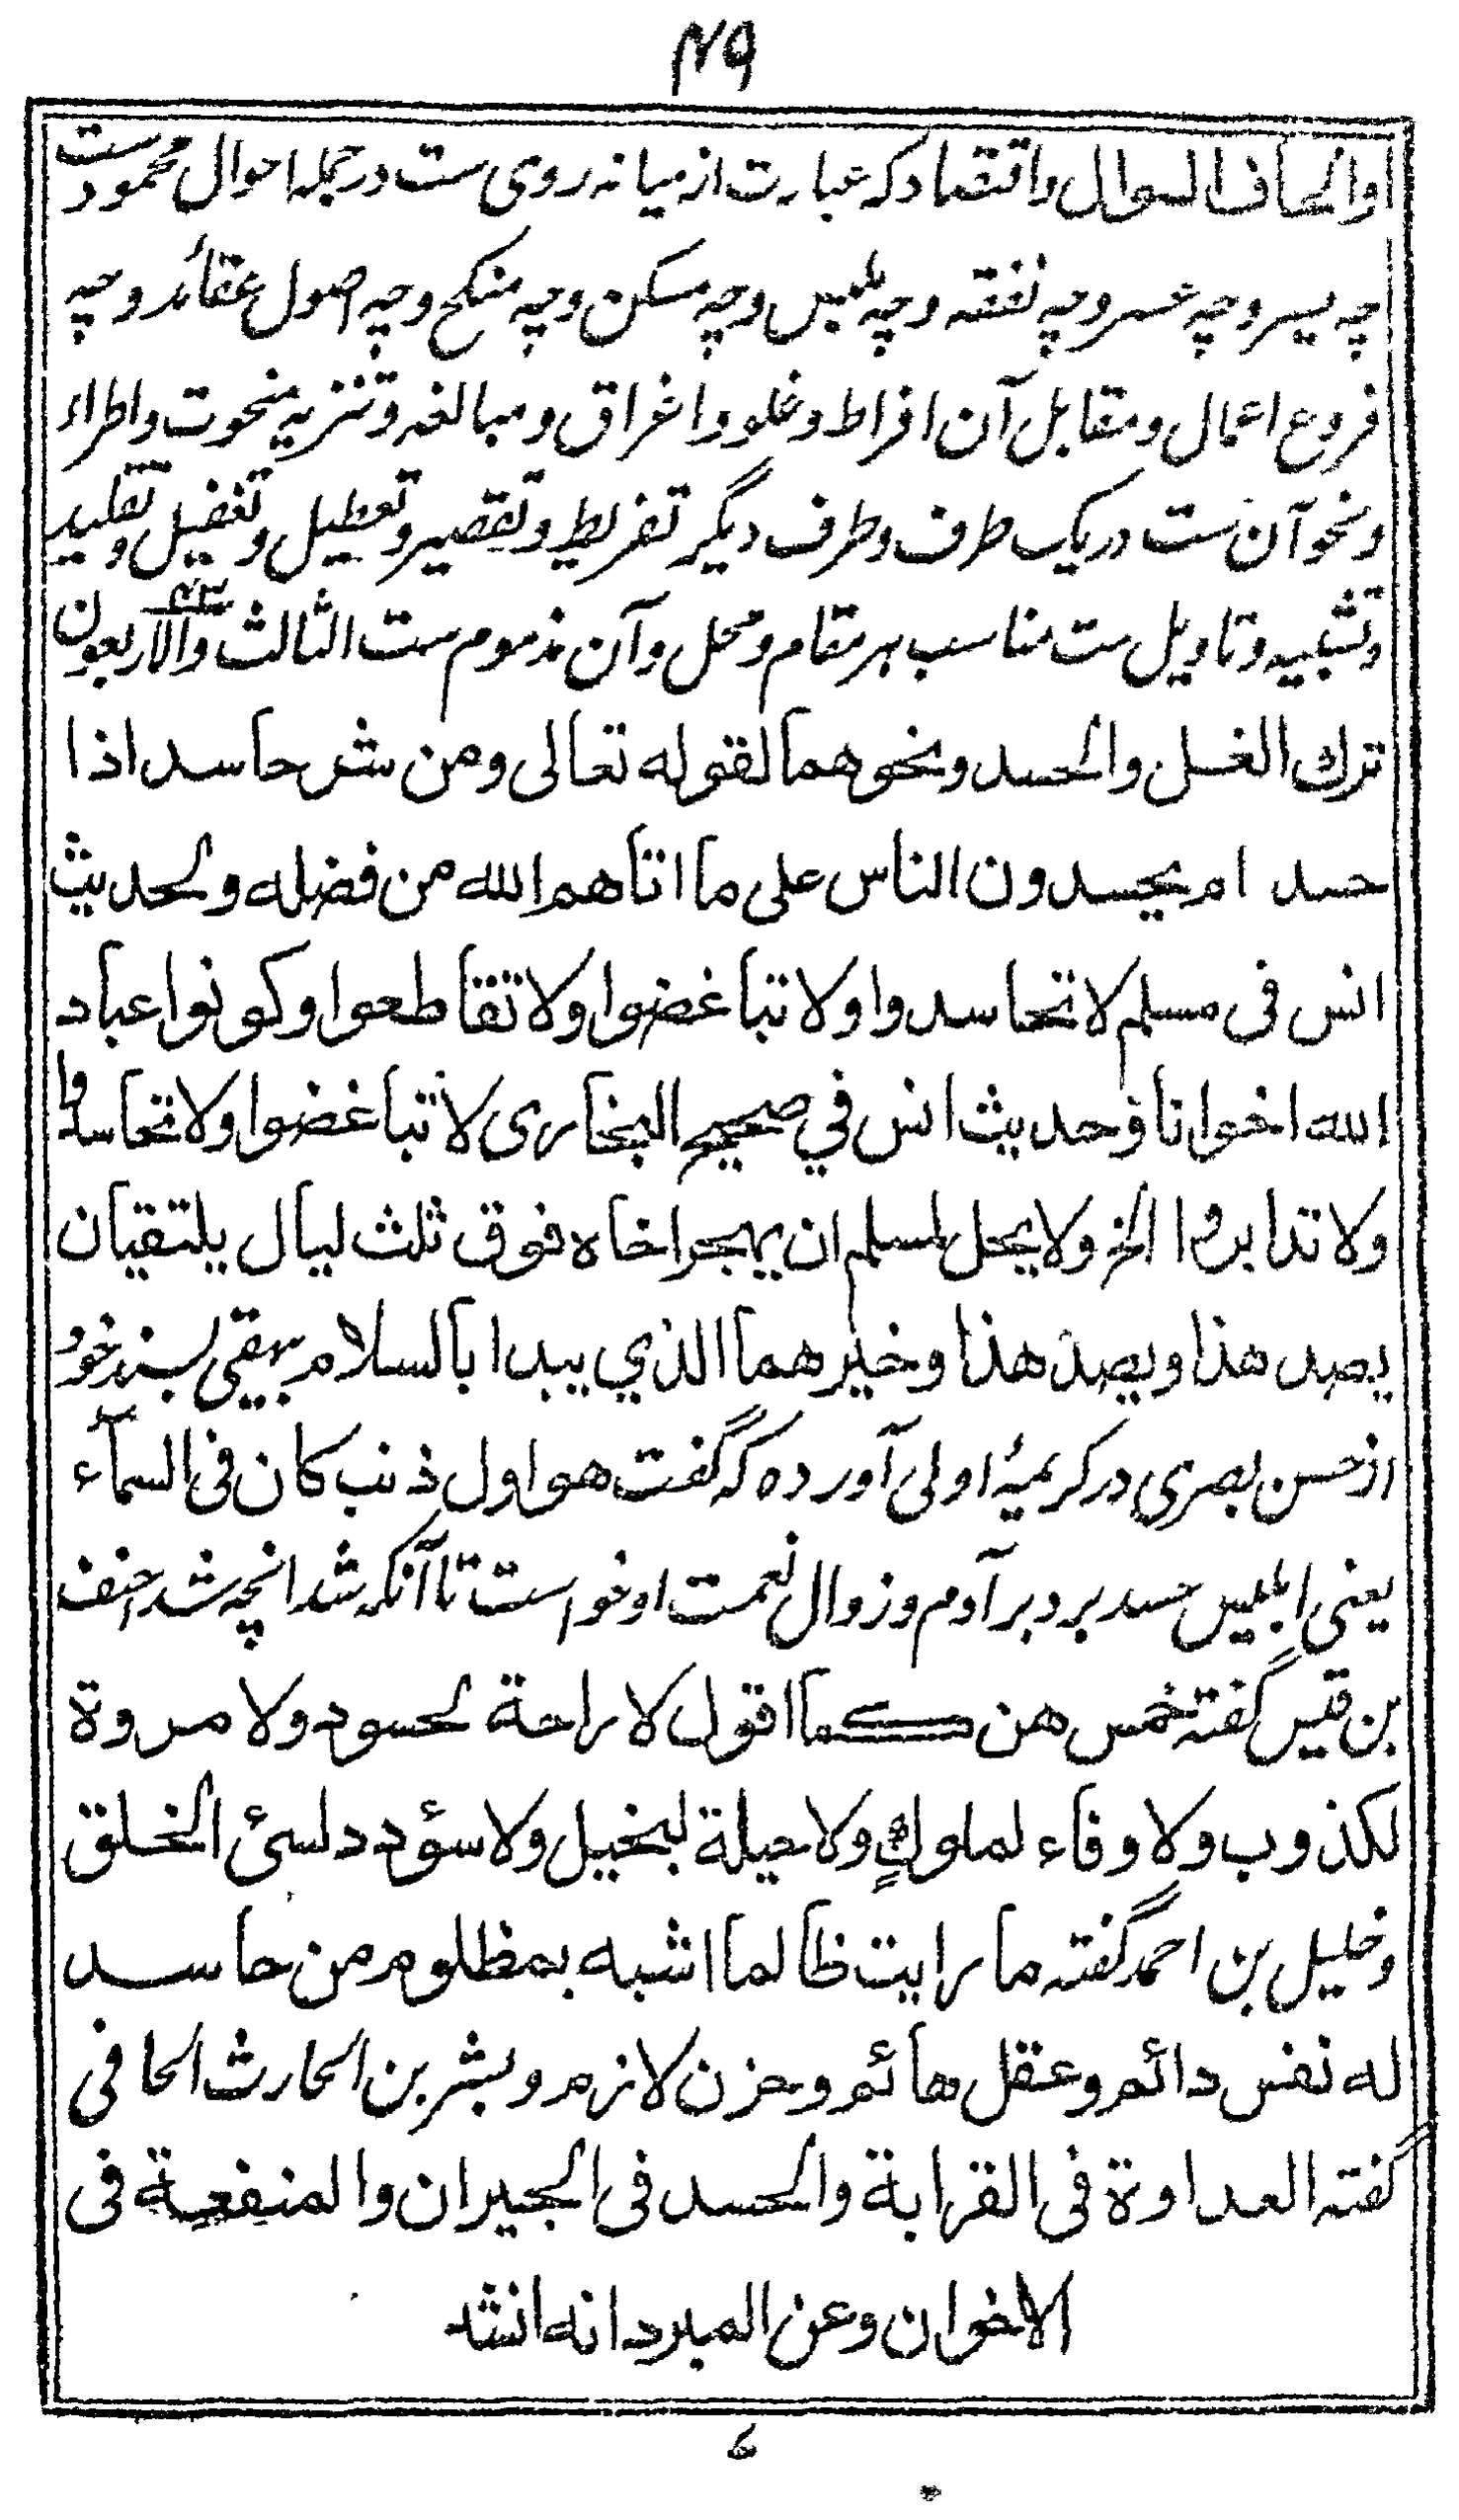 ۴۹
او الحاف السوال واقتصاد کہ عبارت از میانہ روی ست در جملہ احوال محمود ست
چہ یسر و چہ عسر و چہ نفقہ و چہ ملبس و چہ مسکن و چہ منکح و چہ اصول عقائد و چہ
فروع اعمال و مقابل آن افراط و غلو و اغراق و مبالغہ و تنزیہ منحوت و اطراء
و نحو آن ست در یک طرف و طرف دیگر تفریط و تقصیر و تعطیل و تغفیل و تقلید
و تشبیہ و تاویل ست مناسب ہر مقام و محل و آن مذموم ست الثالث والاربعون ۴۳
ترك الغل والحسد ونحوهما لقوله تعالى ومن شر حاسد اذا
حسد ام يحسدون الناس على ما اتاهم الله من فضله ولحديث
انس فى مسلم لا تحاسدوا ولا تباغضوا ولا تقاطعوا وكونوا عباد
الله اخوانا وحديث انس في صحيح البخارى لا تباغضوا ولا تحاسدوا
ولا تدابروا الخ ولا يحل لمسلم ان يهجر اخاه فوق ثلث ليال يلتقيان
يصد هذا ويصد هذا وخيرهما الذي يبدا بالسلام بیہقی بسند خود
از حسن بصری در کریمۂ اولی آورده کہ گفت هو اول ذنب كان فى السمآء
یعنی ابلیس حسد برد بر آدم و زوال نعمت او خواست تا آنکہ شد انچہ شد احنف
بن قیس گفتہ خمس هن كما اقول لا راحة لحسود ولا مروة
لكذوب ولا وفاء لملوك ولا حيلة لبخيل ولا سؤدد لسئ الخلق
و خلیل بن احمد گفتہ ما رايت ظالما اشبه بمظلوم من حاسد
له نفس دائم وعقل هائم وحزن لازم وبشر بن الحارث الحافى
گفتہ العداوة فى القرابة والحسد فى الجيران والمنفعة فى
الاخوان وعن المبرد انه انشد